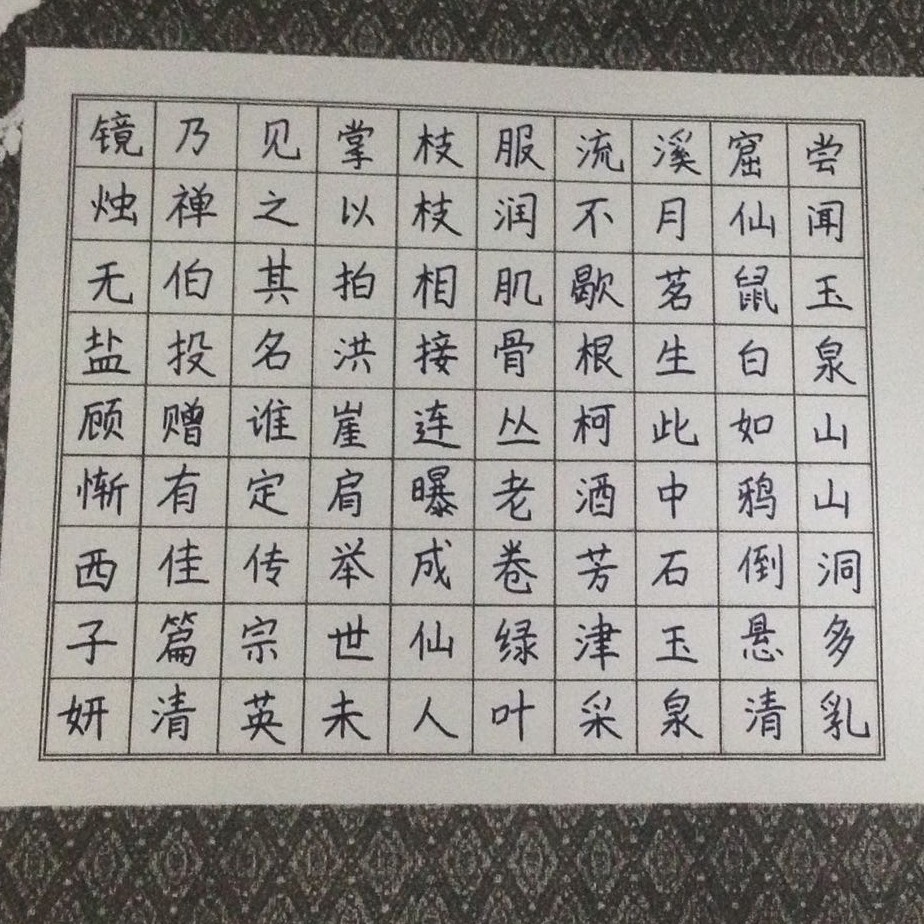 尝闻玉泉山山洞多乳
窟仙鼠白如鸦倒悬清
溪月茗生此中石玉泉
流不歇根柯酒芳津采
服润肌骨丛老卷绿叶
枝枝相接连曝成仙人
掌以拍洪崖肩举世未
见之其名定谁传宗英
乃禅伯投赠有佳篇清
镜烛无盐顾惭西子妍